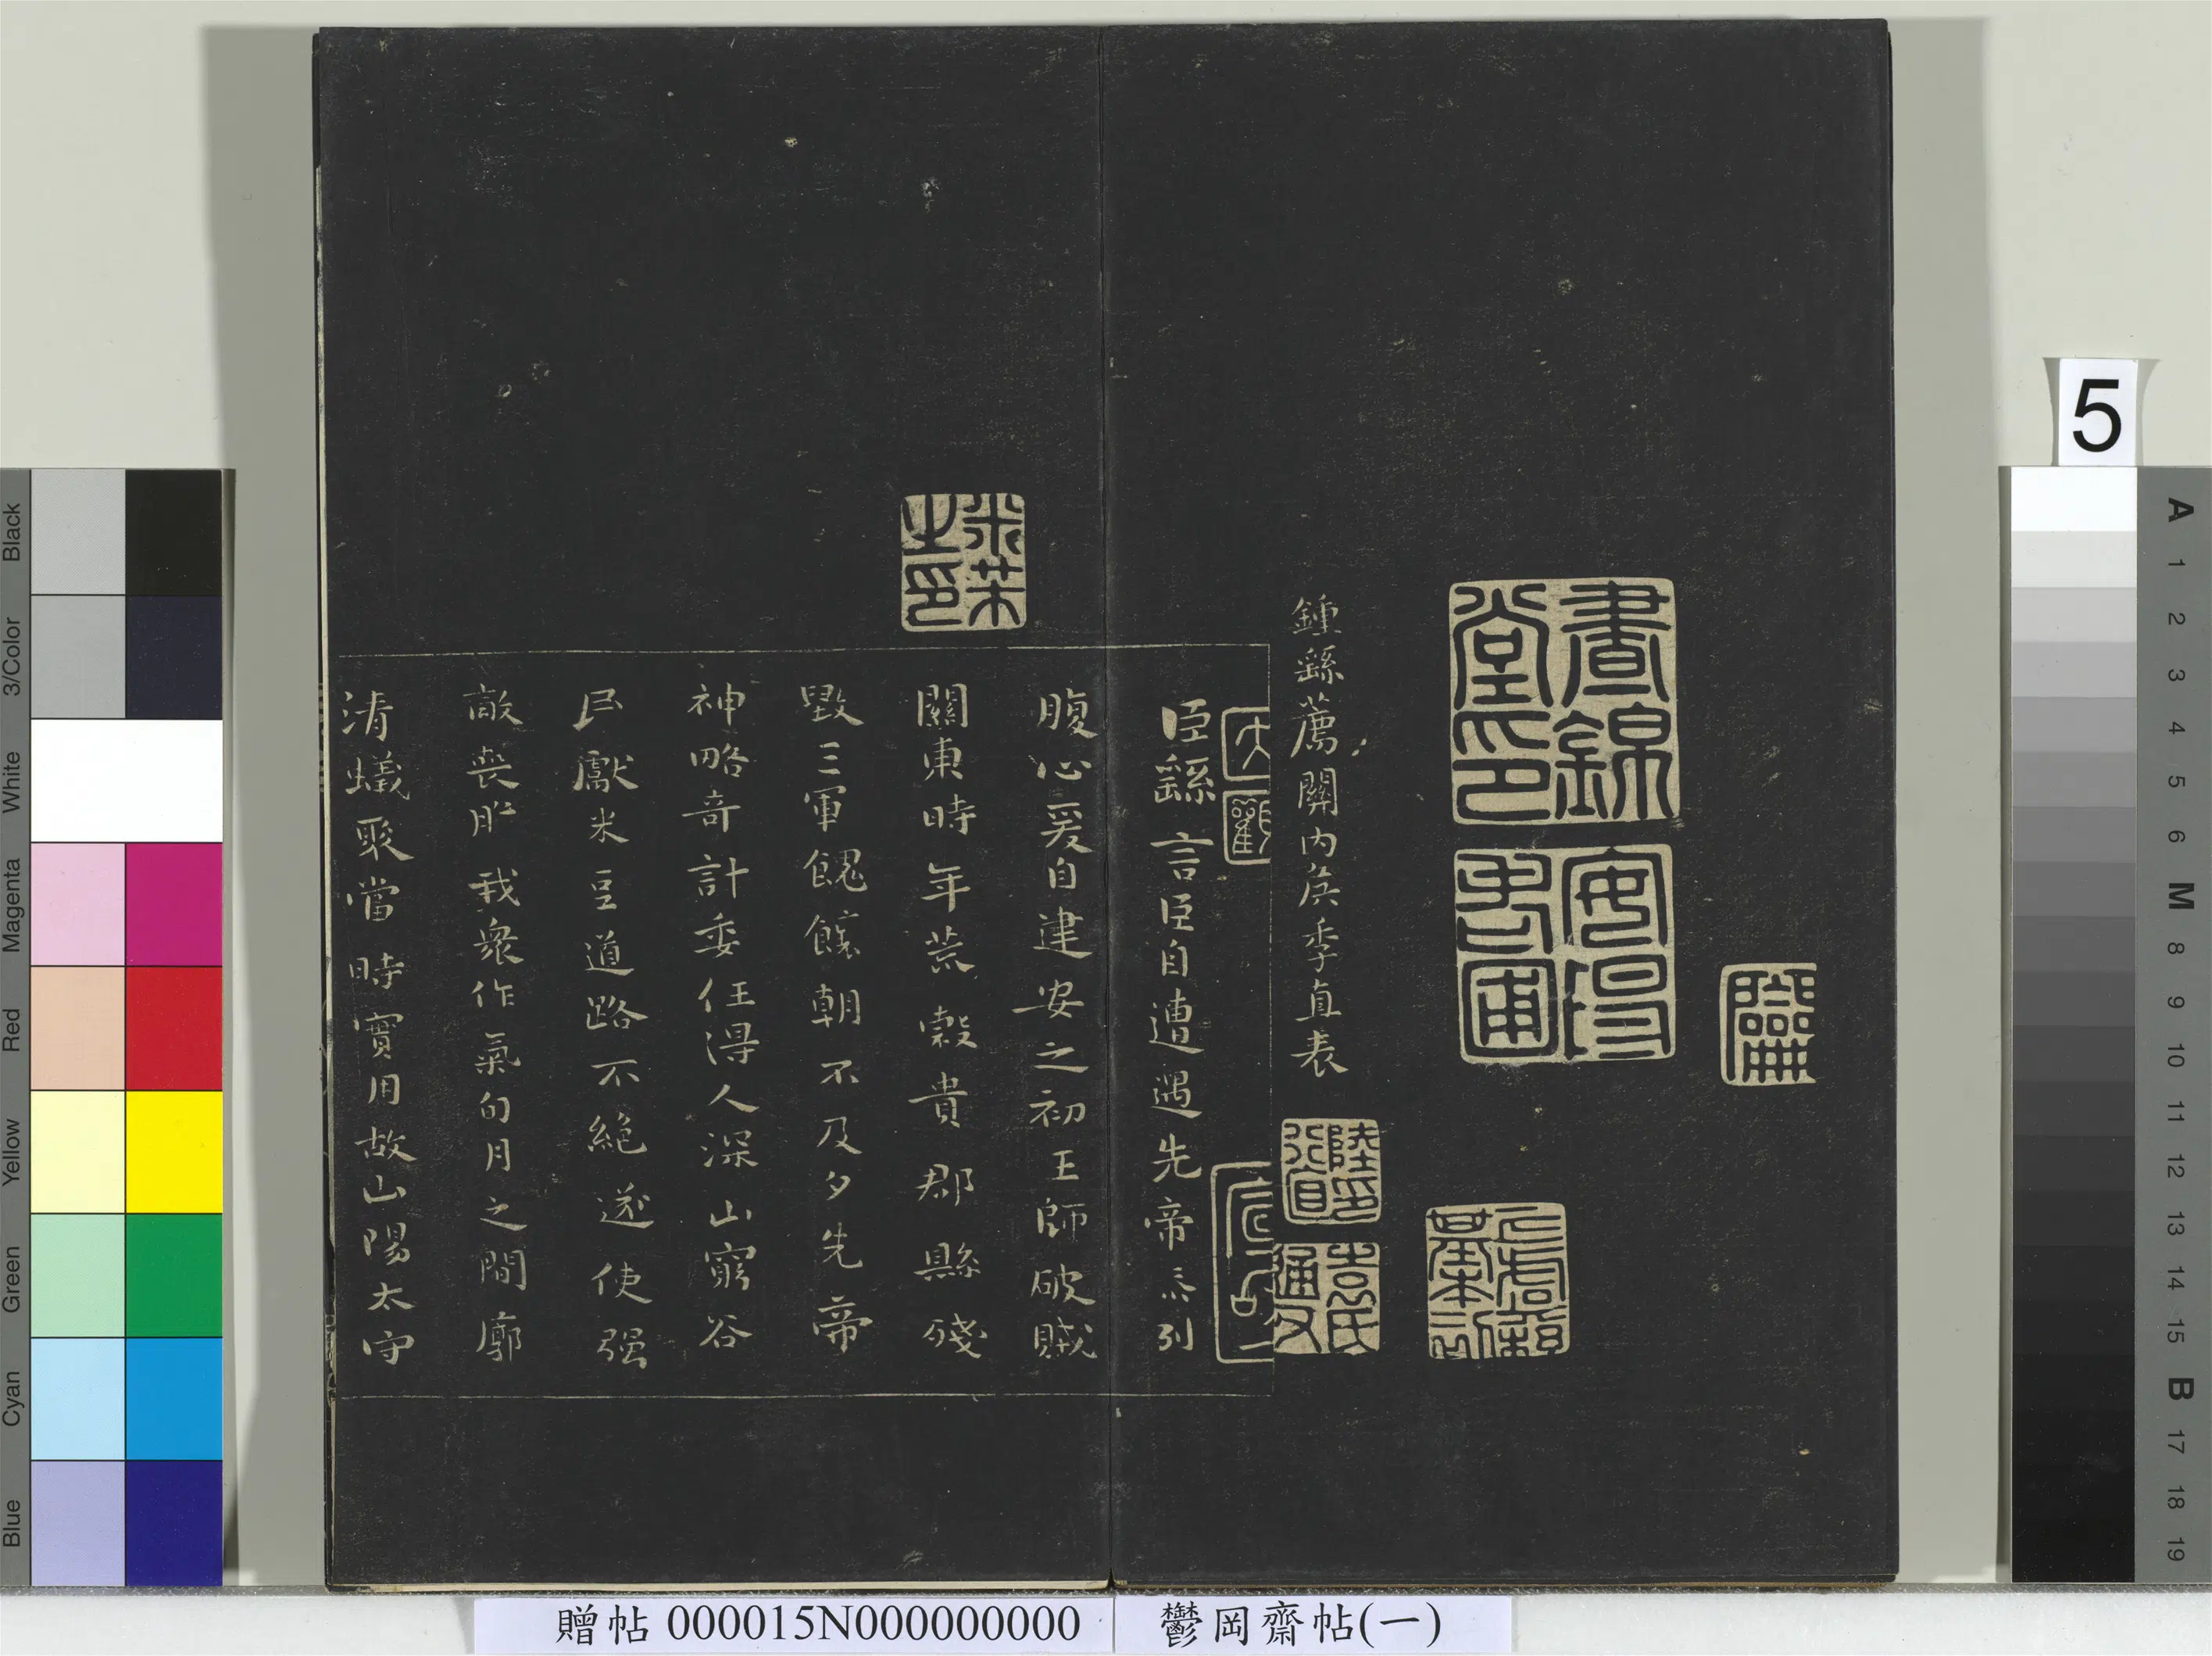 5
晝錦堂印
安得書屯
鍾繇薦關内矦季直表
陸行直印
袁氏通父
天觀
米芾之印
臣繇言臣自遭遇先帝忝列
腹心爰自建安之初王師破賊
關東時年荒穀貴郡縣殘
毀三軍餽饟朝不及夕先帝
神略奇計委任得人深山窮谷
民獻米豆道路不絕遂使强
敵喪膽我衆作氣旬月之間廓
清蟻聚當時實用故山陽太守
贈帖 000015N000000000
鬱岡齋帖(一)
Black
3/Color
White
Magenta
Red
Yellow
Green
Cyan
Blue
A
1
2
3
4
5
6
M
8
9
10
11
12
13
14
15
B
17
18
19